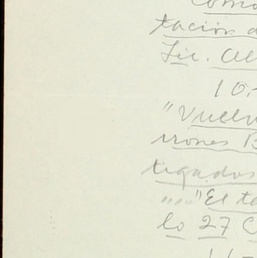 Como
tación d
Lic. Al
10.
"Vuelv
irones B
tigados
...."El te
lo 27 C
11-